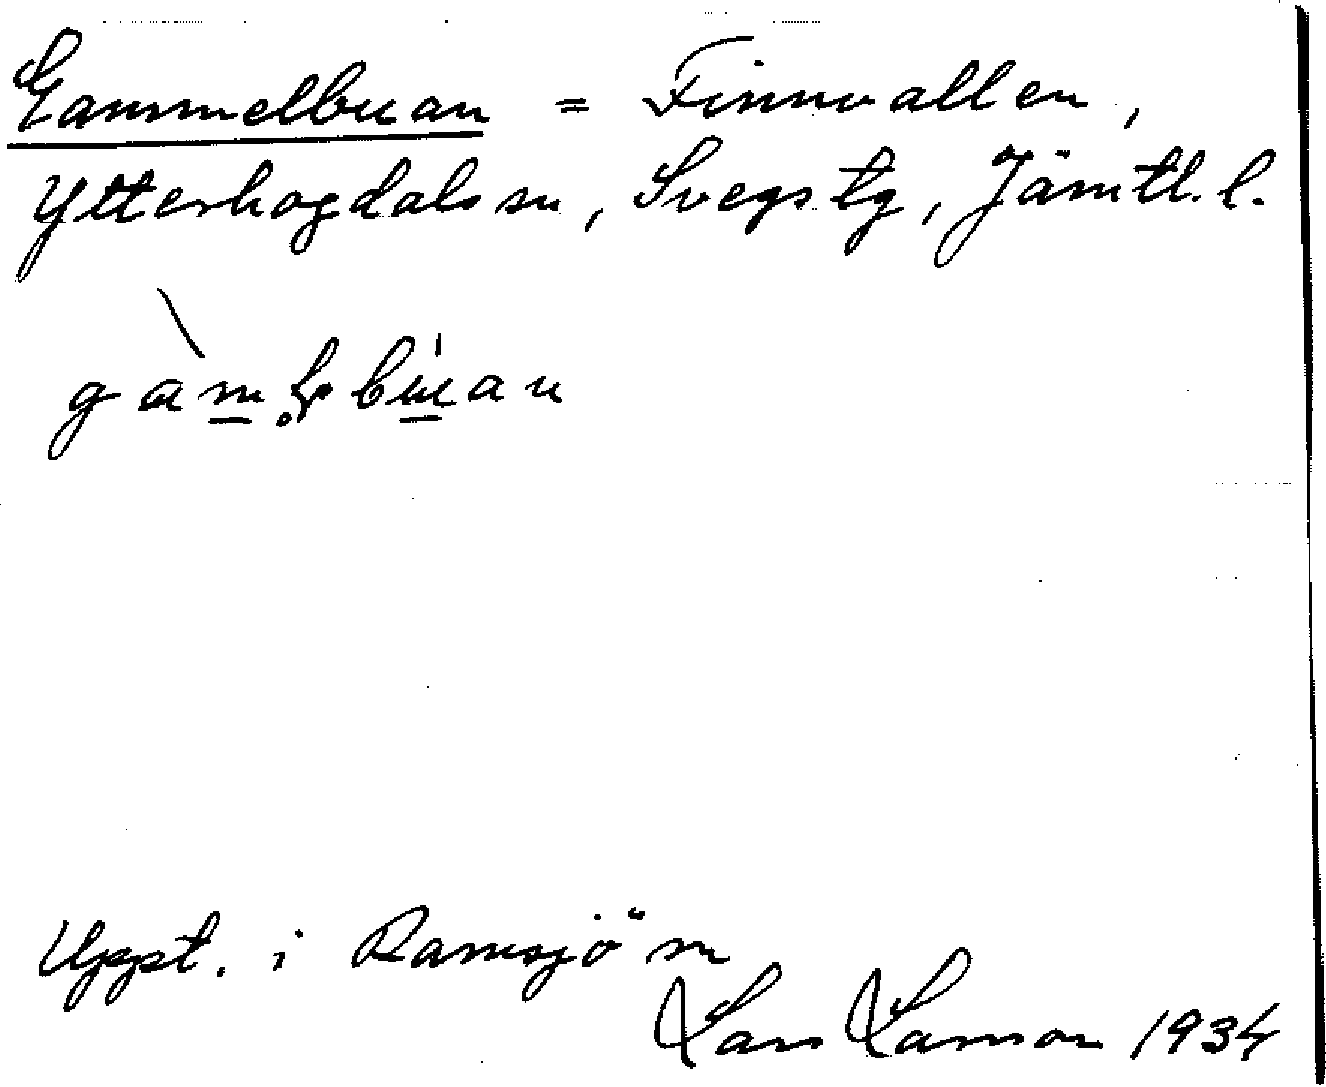 Gammelbuan = Finnvallen,
Ytterhogdals sn, Svegs tg, Jämtl. l.
Uppt. i Ramsjö sn
Lars Larsson 1934